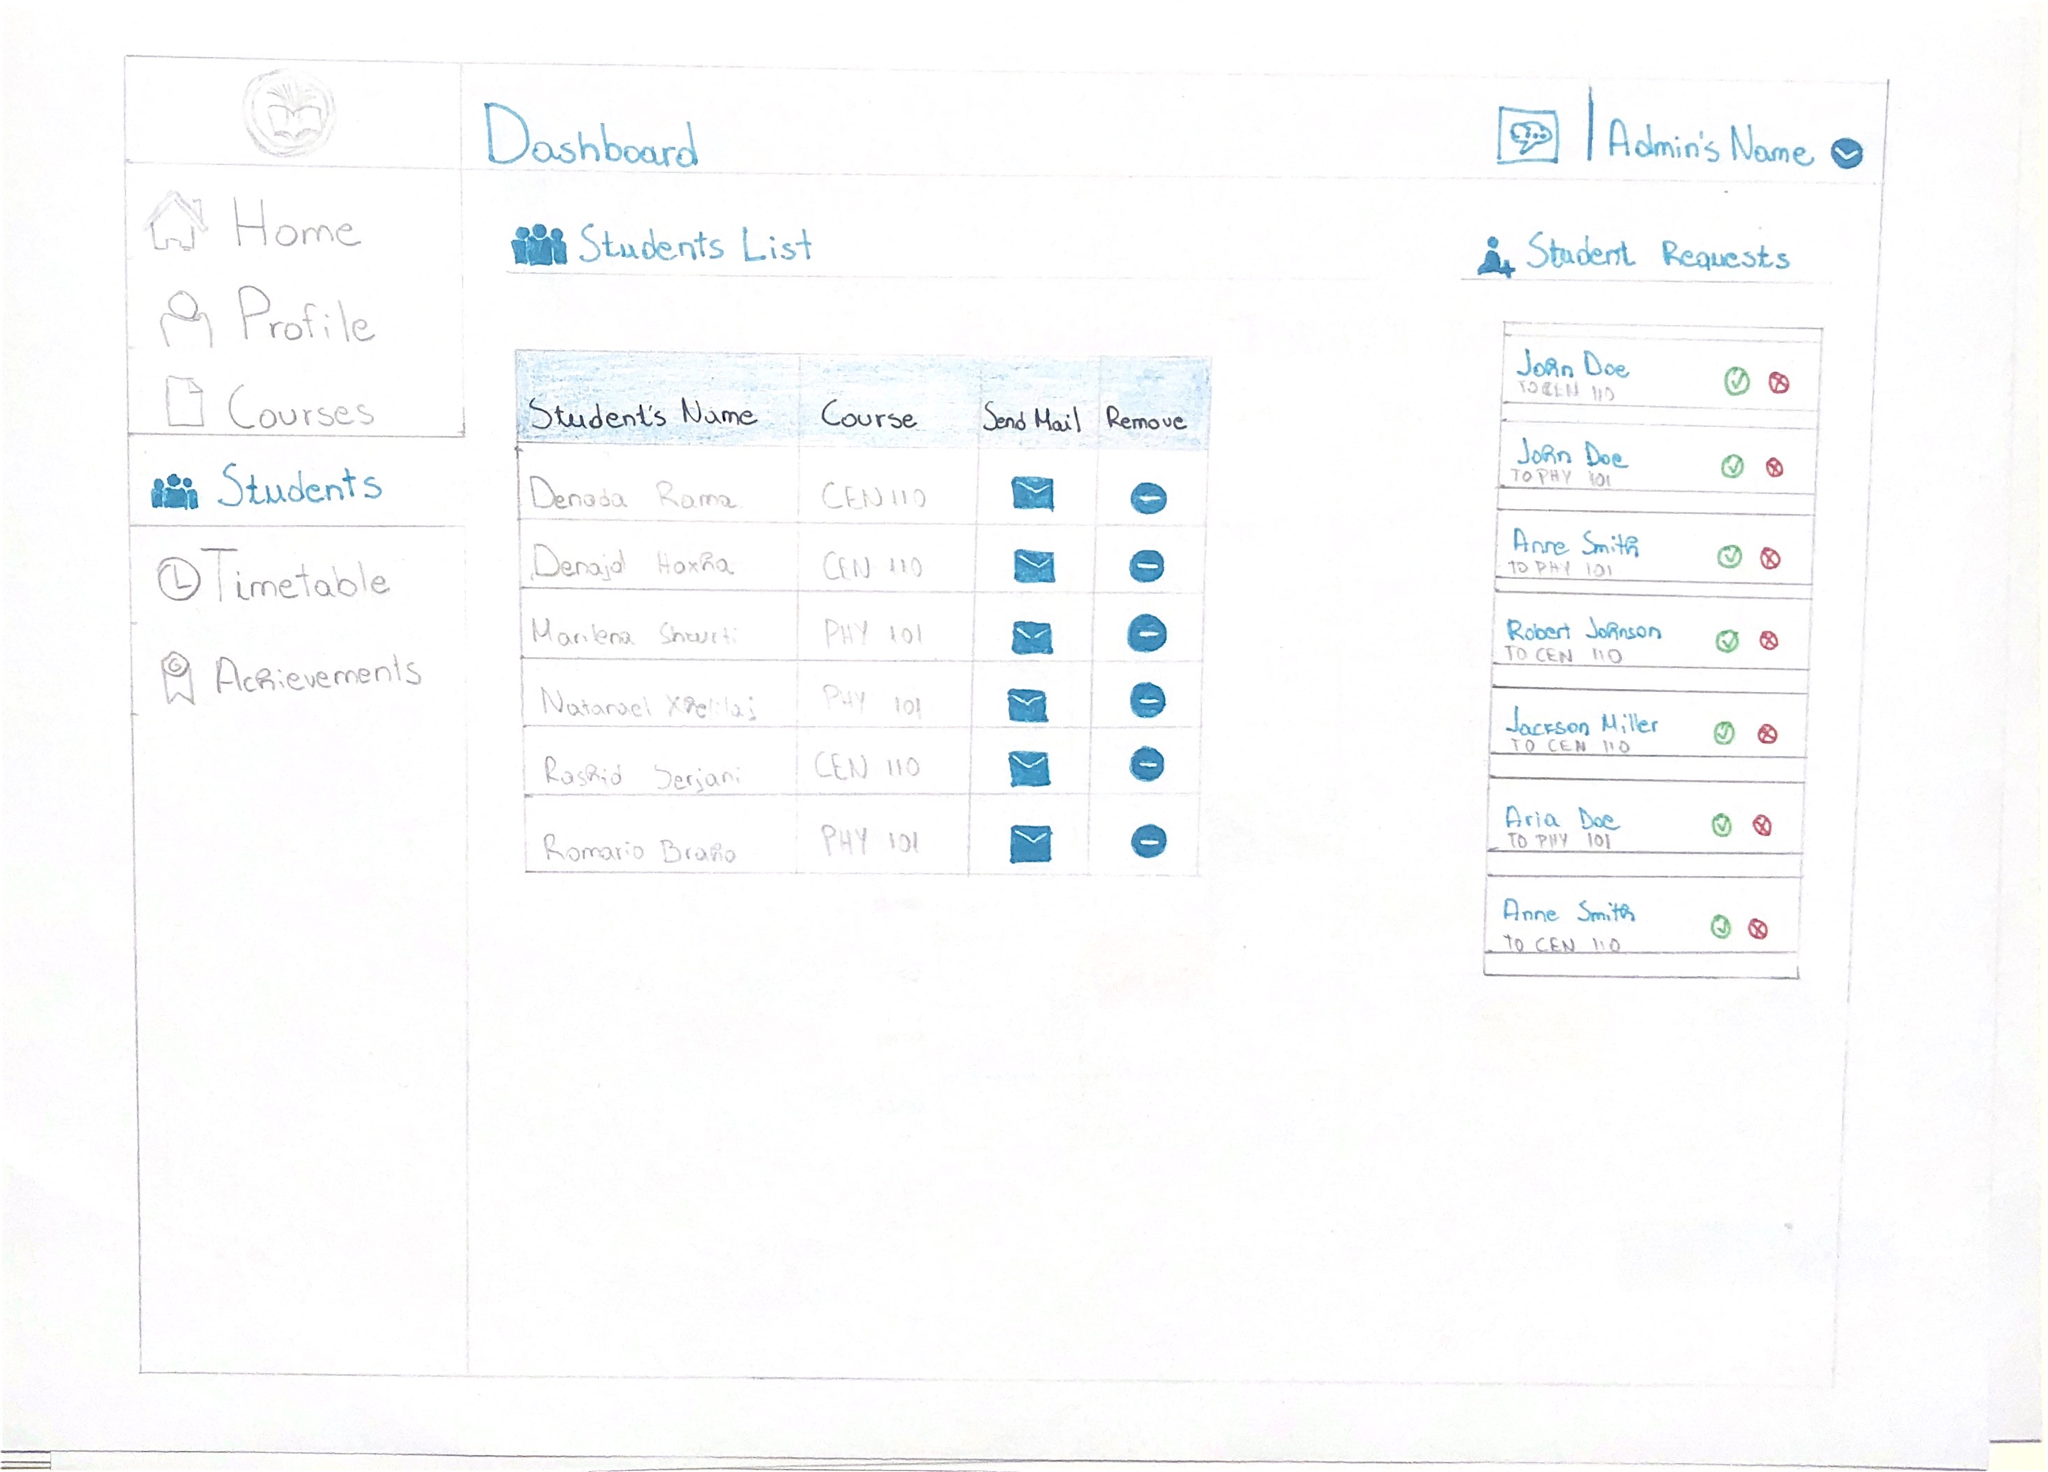 Dashboard
Admin's Name
Home
Profile
Courses
Students
Timetable
Achievements
Students List
Student's Name Course Send Mail Remove
Denada Rama CEN 110
Denajd Hoxha CEN 110
Marilena PHY 101
Natanael Xhelilaj PHY 101
Rashid Serjani CEN 110
Romario Braho PHY 101
Student Requests
John Doe
TO CEN 110
John Doe
TO PHY 101
Anne Smith
TO PHY 101
Robert Johnson
TO CEN 110
Jackson Miller
TO CEN 110
Aria Doe
TO PHY 101
Anne Smith
TO CEN 110